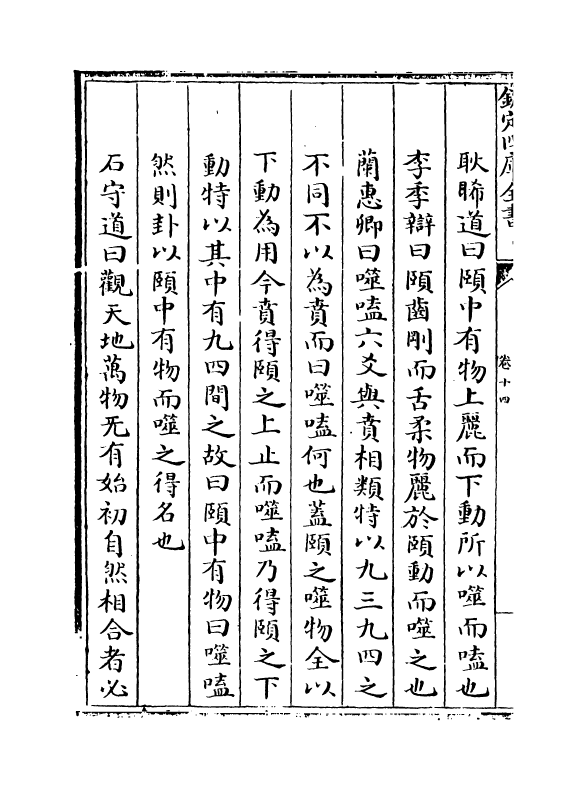 欽定四庫全書
卷十四
耿睎道曰頤中有物上麗而下動所以噬而嗑也
李季辯曰頤齒剛而舌柔物麗於頤動而噬之也
蘭惠卿曰噬嗑六爻與賁相類特以九三九四之
不同不以為賁而曰噬嗑何也蓋頤之噬物全以
下動為用今賁得頤之上止而噬嗑乃得頤之下
動特以其中有九四間之故曰頤中有物曰噬嗑
然則卦以頤中有物而噬之得名也
石守道曰觀天地萬物无有始初自然相合者必